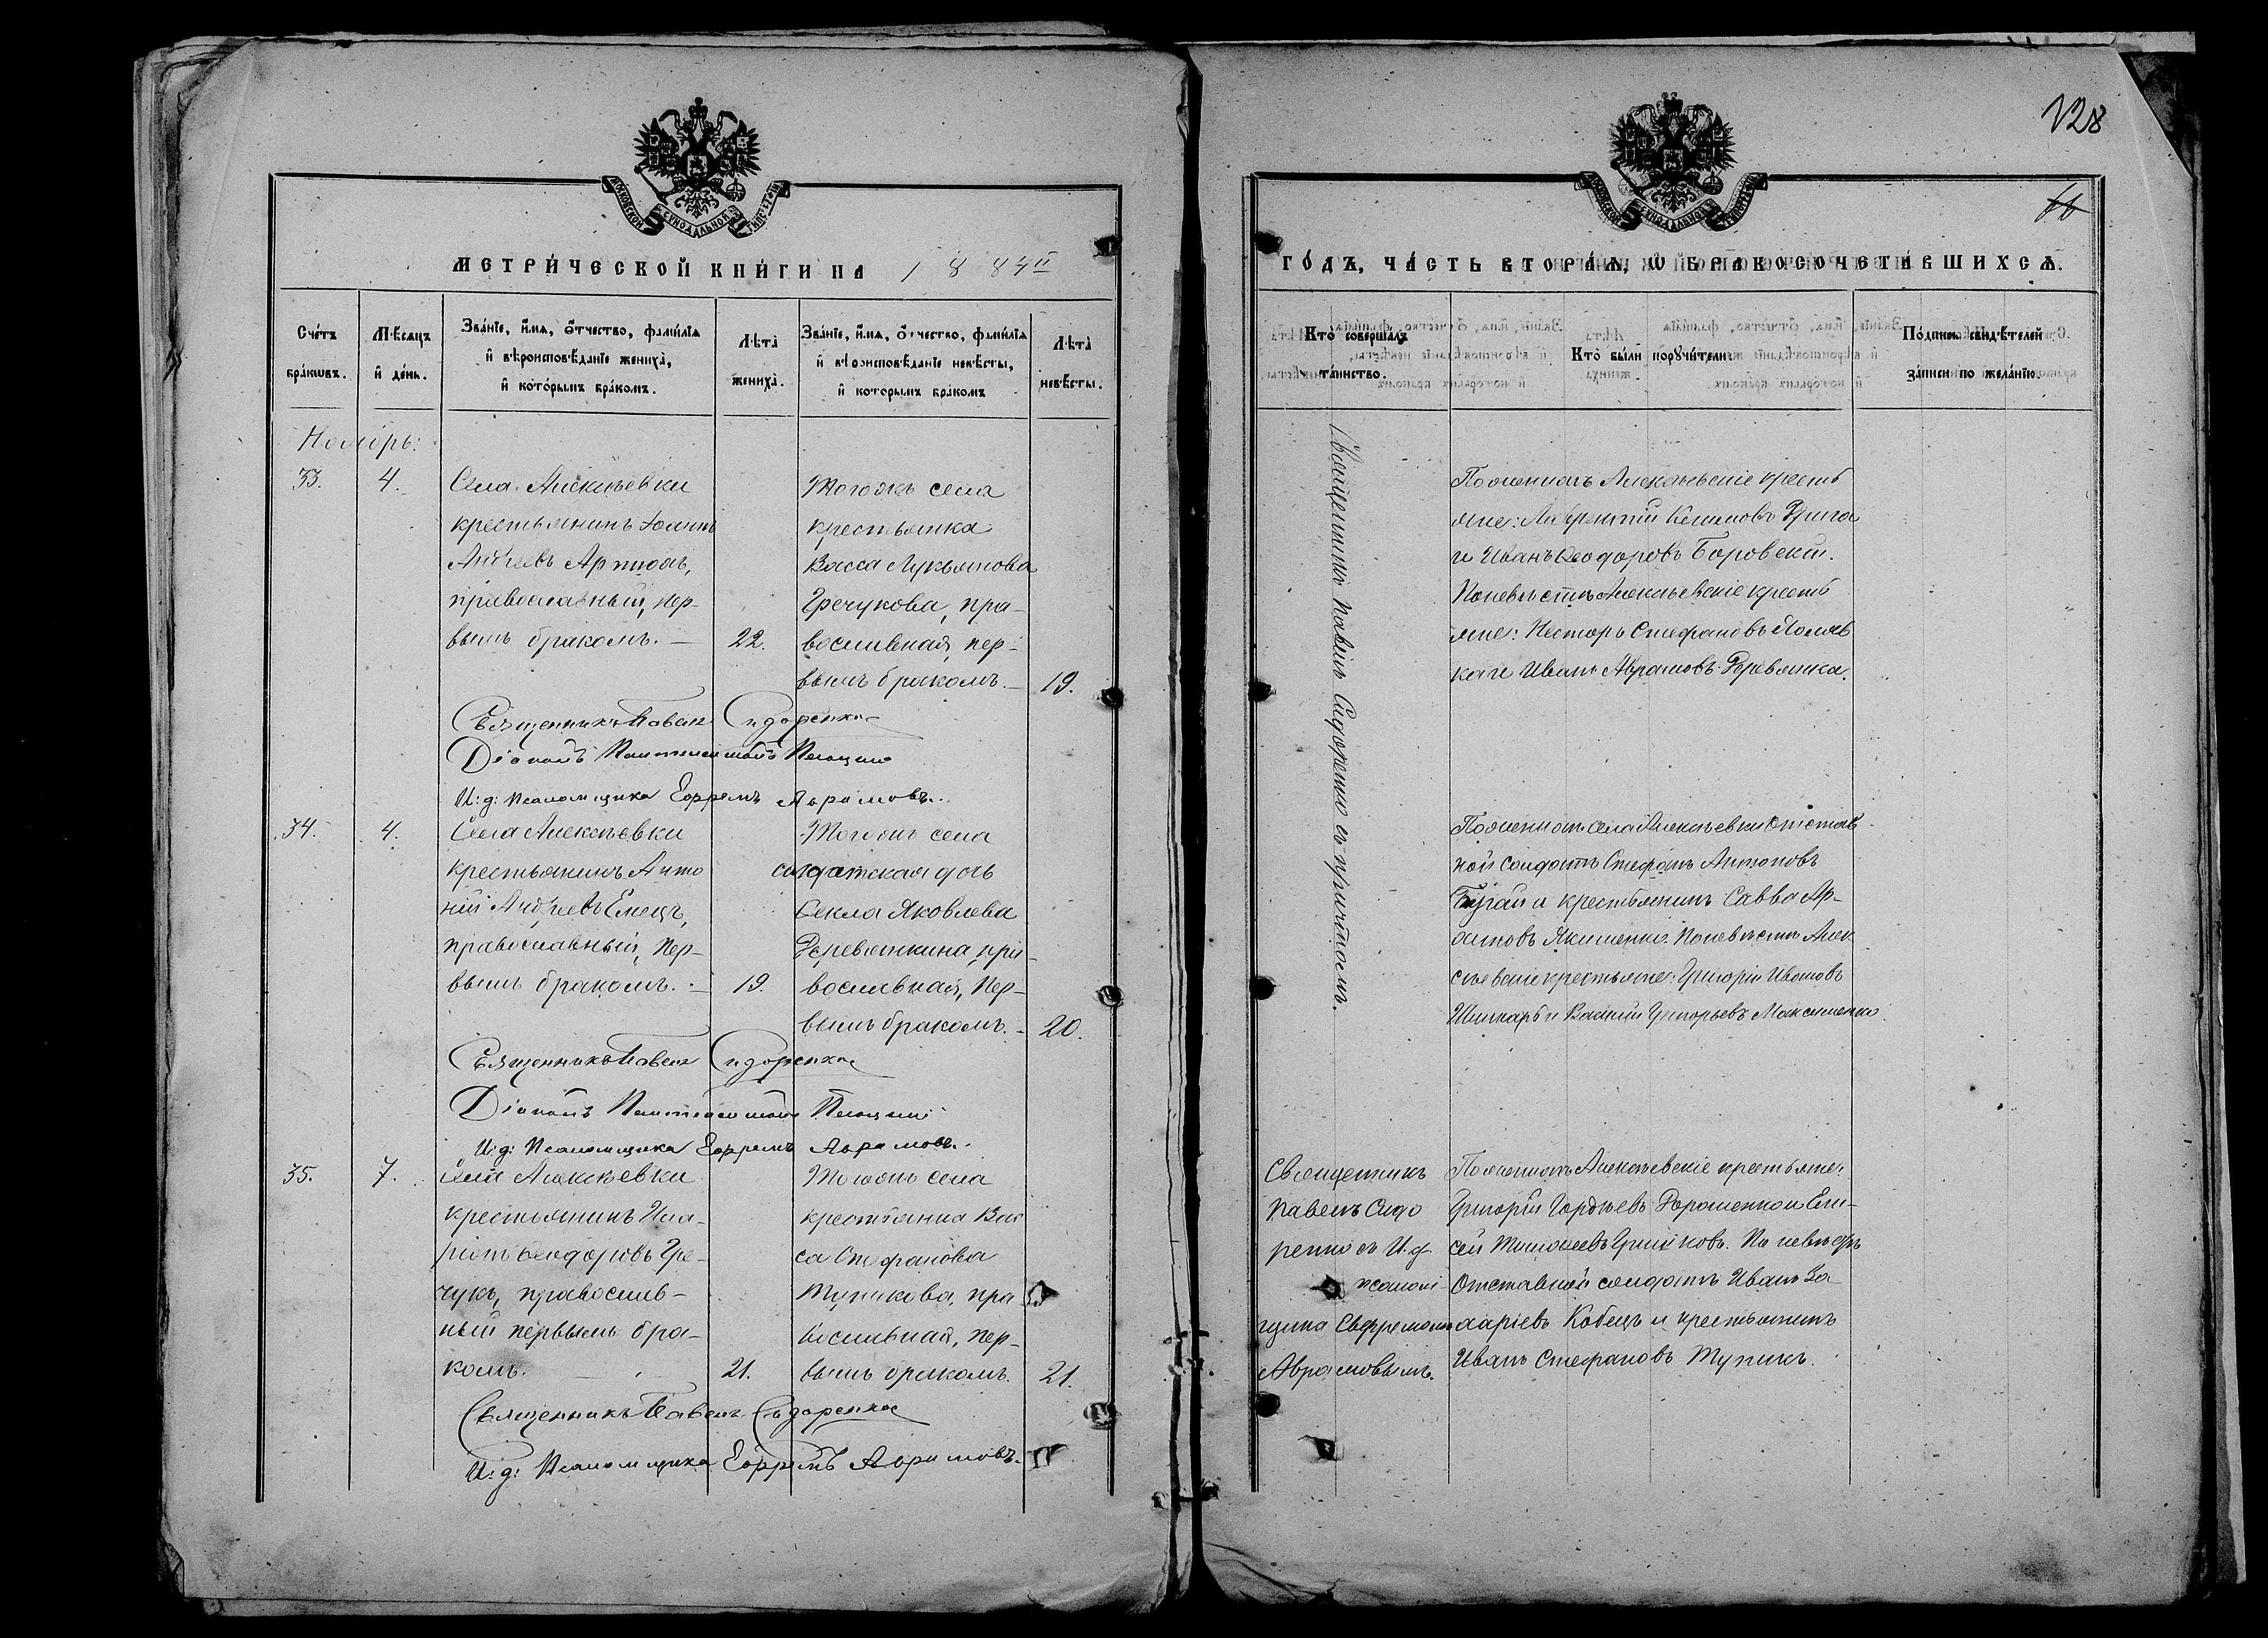 128
МОСКОВСКОЙ СУНОДАЛЬНОЙ ТИПОГРАФІИ
МОСКОВСКОЙ СУНОДАЛЬНОЙ ТИПОГРАФІИ
МЕТРИ́ЧЕСКОЙ КНИ́ГИ НА 1884й
Сче́тъ бра́кѡвъ.
Мѣ́сяцъ и҆ де́нь.
Зва́нїе, и҆́мѧ, ѻ҆́тчество, фамѝлїѧ и҆ вѣроисповѣ́данїе жениха̀, и҆ кото́рымъ бра́комъ.
Лѣта̀ жениха̀.
Зва́нїе, и҆́мѧ, ѻ҆́тчество, фамѝлїѧ и҆ вѣроисповѣ́данїе невѣ́сты, и҆ кото́рымъ бра́комъ
Лѣта̀ невѣ́сты.
Ноябрь:
33.
4.
Села Алексѣевки
крестьянинъ Іоаннъ
Андреевъ
православный, пер-
вымъ бракомъ. —
22.
Тогожъ села
крестьянка
Васса Лукьянова
Гречукова, пра-
вославная, пер-
вымъ бракомъ. —
19.
Священникъ Павелъ Сидоренко
Діаконъ Пантелеимонъ
И: д: Псаломщика Ефремъ Аврамовъ.
34.
4.
Села Алексѣевки
крестьянинъ Анто
ній Андреевъ Емецъ,
православный, пер-
вымъ бракомъ. —
19.
Тогожъ села
солдатская дочь
Ѳекла Яковлева
Деревянкина, пра-
вославная, пер-
вымъ бракомъ. —
20.
Священникъ Павелъ Сидоренко
Діаконъ Пантелеимонъ
И: д: Псаломщика Ефремъ Аврамовъ.
35.
7.
Села Алексѣевки
крестьянинъ Ила-
ріонъ Ѳеодоровъ Гре-
чукъ, православ-
ный первымъ бра-
комъ.
21.
Тогожъ села
крестьянка Вас
са Стефанова
Тупикова, пра
вославная, пер-
вымъ бракомъ.
21.
Священникъ Павелъ Сидоренко
И: д: Псаломщика Ефремъ Аврамовъ.
ГО́ДЪ, ЧА́СТЬ ВТОРА́Ѧ, Ѡ҆ БРАКОСОЧЕТА́ВШИХСѦ.
Кто̀ соверша́лъ та́инство.
Кто̀ бы́ли порꙋчи́тели.
По́дписи свидѣ́телей за́писи по жела́нїю.
Священникъ Павелъ Сидоренко съ причтомъ.
По женихѣ Алексѣевскіе кресть
яне: Лаврентій Климовъ Дрига
и Иванъ Ѳеодоровъ Боровскій.
По невѣстѣ Алексѣевскіе кресть
яне: Несторъ Стефановъ Поляв
ка и Иванъ Аврамовъ Деревянка.
По женихѣ села Алексѣевки отстав
ной солдатъ Стефанъ Антоновъ
Бугай и крестьянинъ Савва
Якименко. По невѣстѣ Алек
сѣевскіе крестьяне: Григорій Ивановъ
Шинкарь и Григорьевъ Максименко.
Священникъ
Павелъ Сидо
ренко съ И. д.
псалом-
щика Ефремомъ
Аврамовымъ.
По женихѣ Алексѣевскіе крестьяне:
Григорій Гордѣевъ Дорошенко и Ели-
сей Тимоѳеевъ По невѣстѣ
Отставной солдатъ Иванъ За
харіевъ Кобецъ и крестьянинъ
Иванъ Стефановъ Тупикъ.